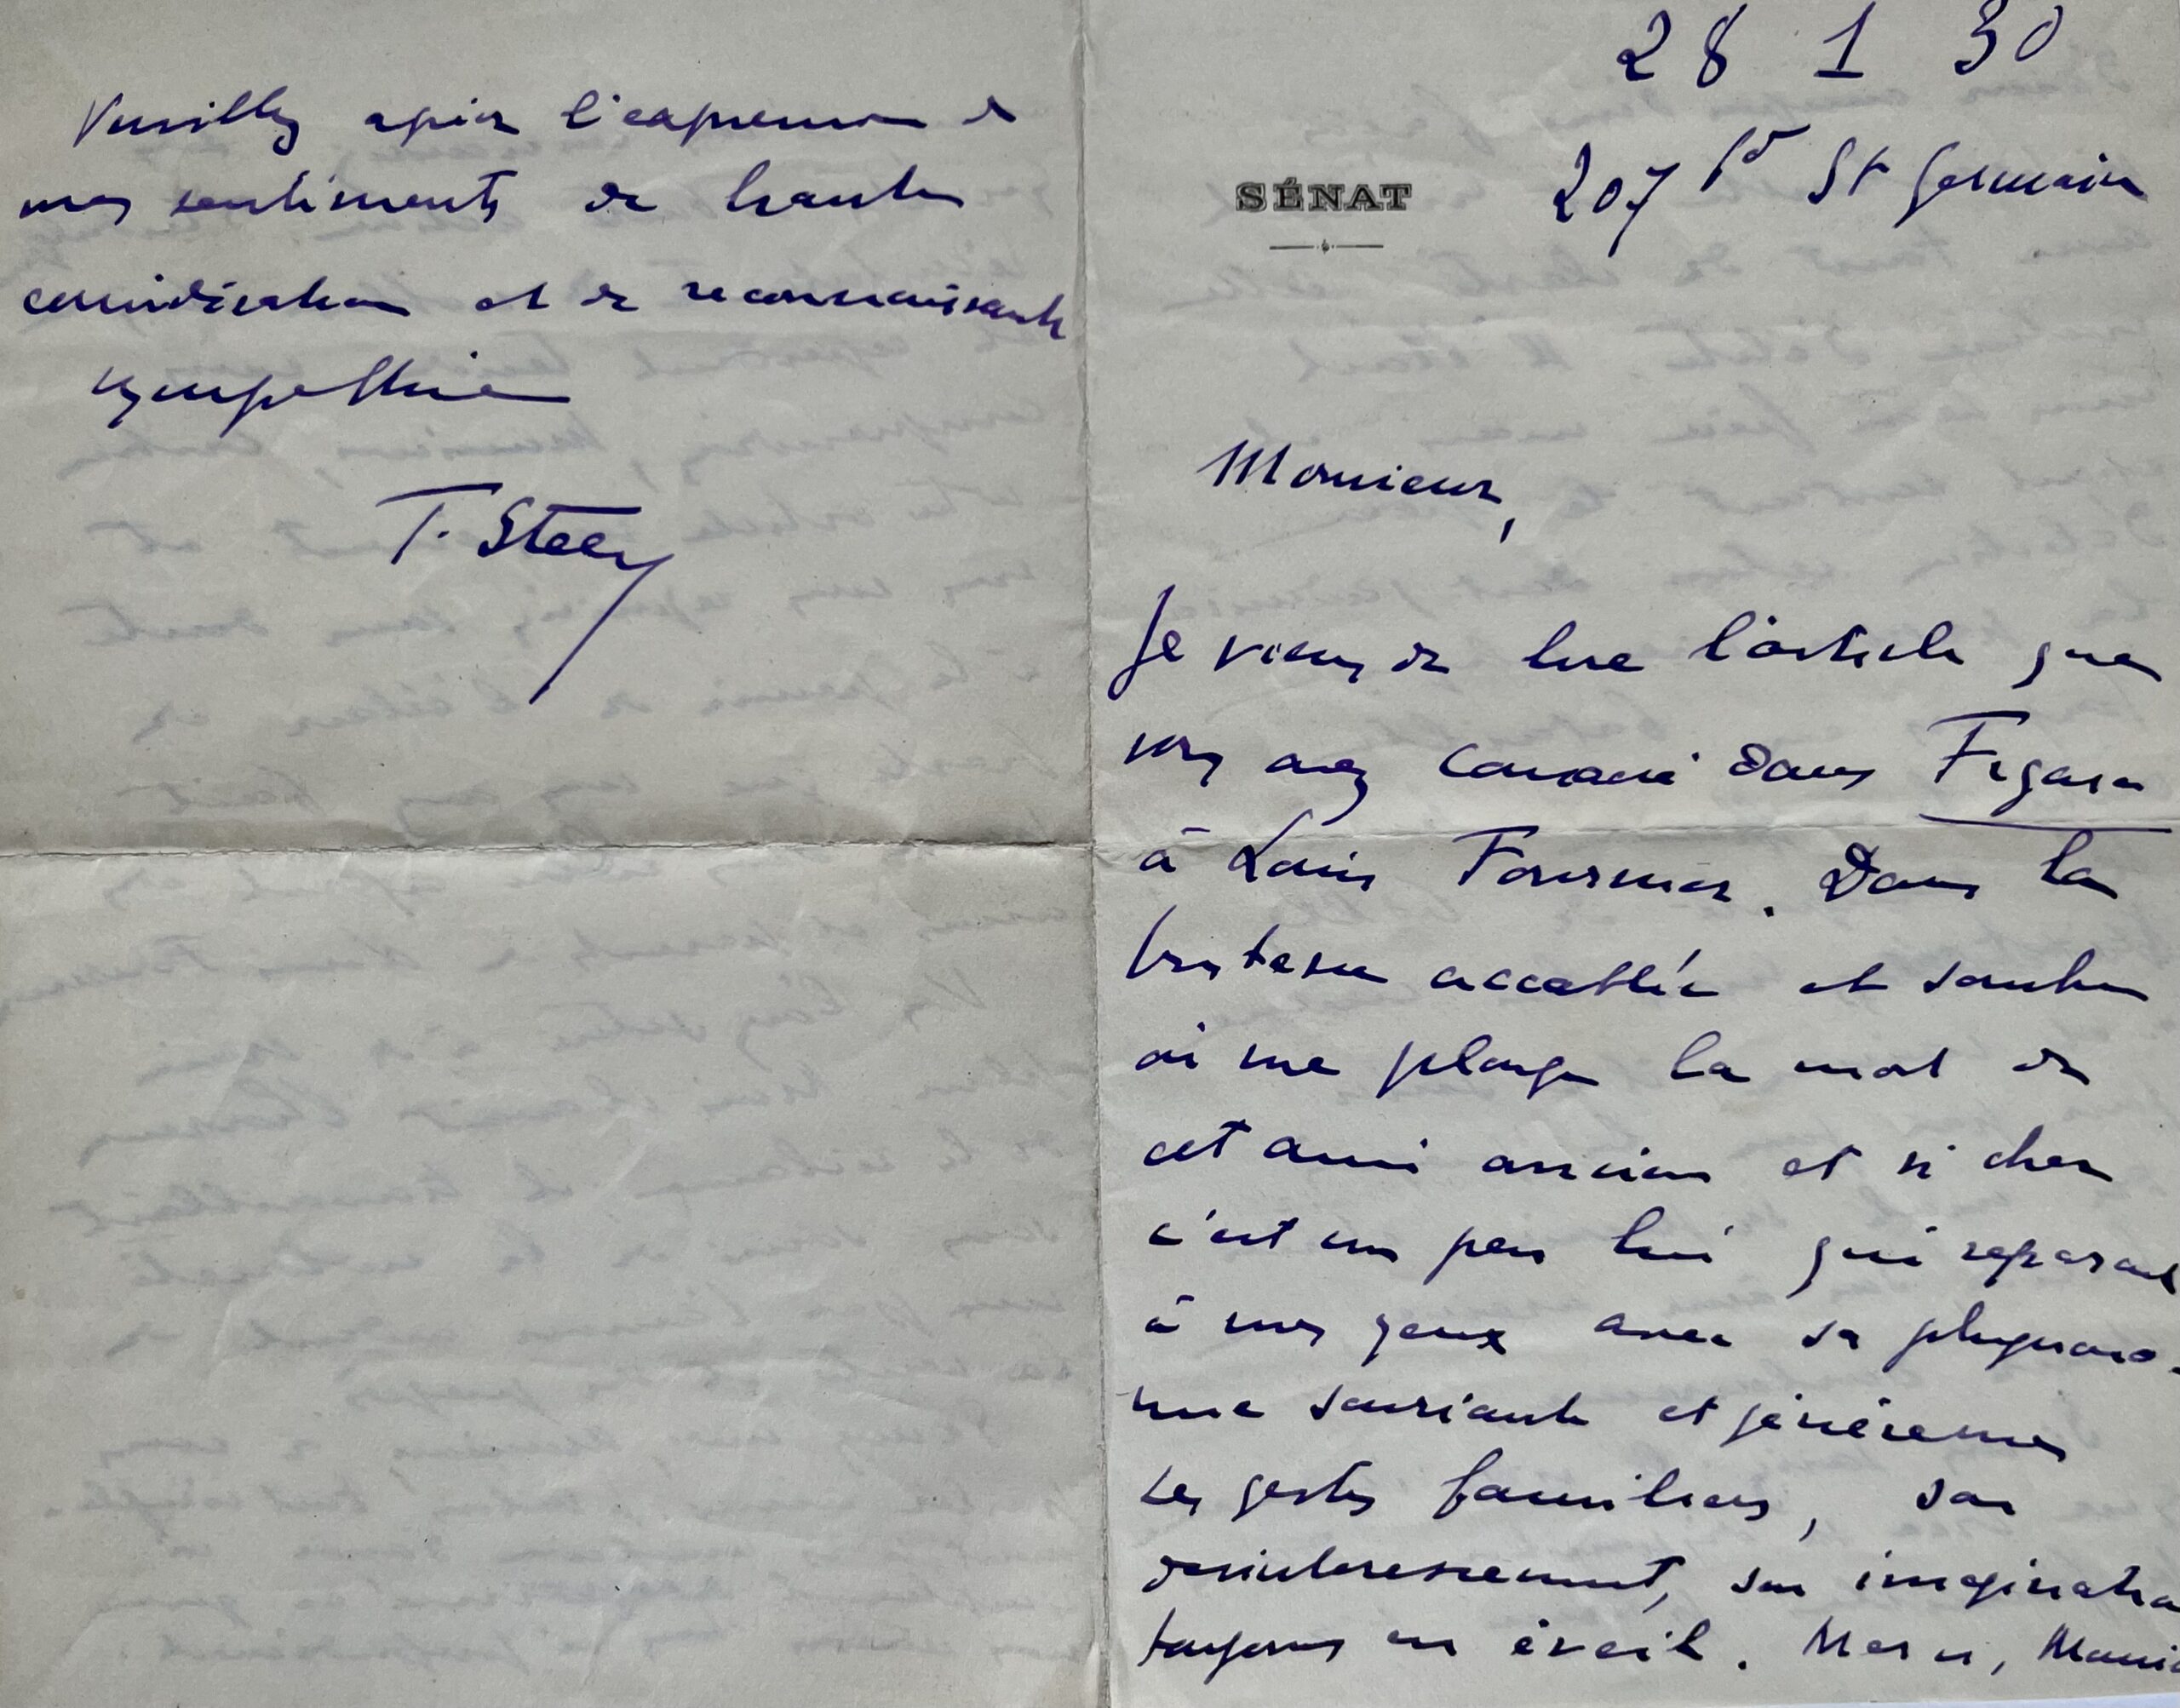 28 1 30
SÉNAT
207 Bd St Germain
Monsieur,
Je viens de lire l'article que
vous avez consacré dans Figaro
à Louis Fournier. Dans la
tristesse accablée et sombre
où me plonge la mort de
cet ami ancien et si cher
c'est un peu lui qui reparait
à mes yeux avec sa physiono-
mie souriante et généreuse
ses gestes familiers, son
desinteressement, son imagination
toujours en éveil. Merci,
Veuillez agréer l'expression de
mes sentiments de haute
considération et de reconnaissante
sympathie
T. Steeg